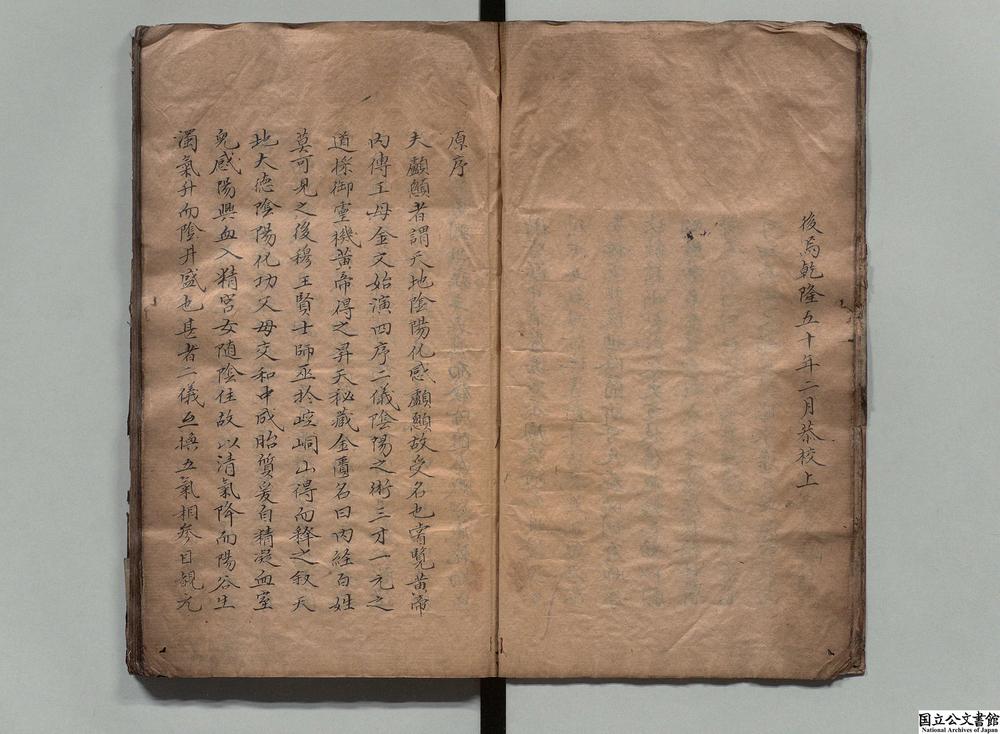 後焉乾隆五十年二月恭校上
原序
夫顱顖者謂天地陰陽化感顱顖故受名也甞覽黄帝
内傳王母金文始演四序二儀陰陽之術三才一元之
道採御靈機黄帝得之昇天秘藏金匱名曰内經百姓
莫可見之後穆王賢士師巫扵崆峒山得而釋之叙天
地大德陰陽化功父母交和中成胎質爰自精凝血室
兒感陽興血入精宮女随陰住故以清氣降而陽谷生
濁氣升而陰井盛也甚者二儀互換五氣相参日親元
国立公文書館
National Archives of Japan